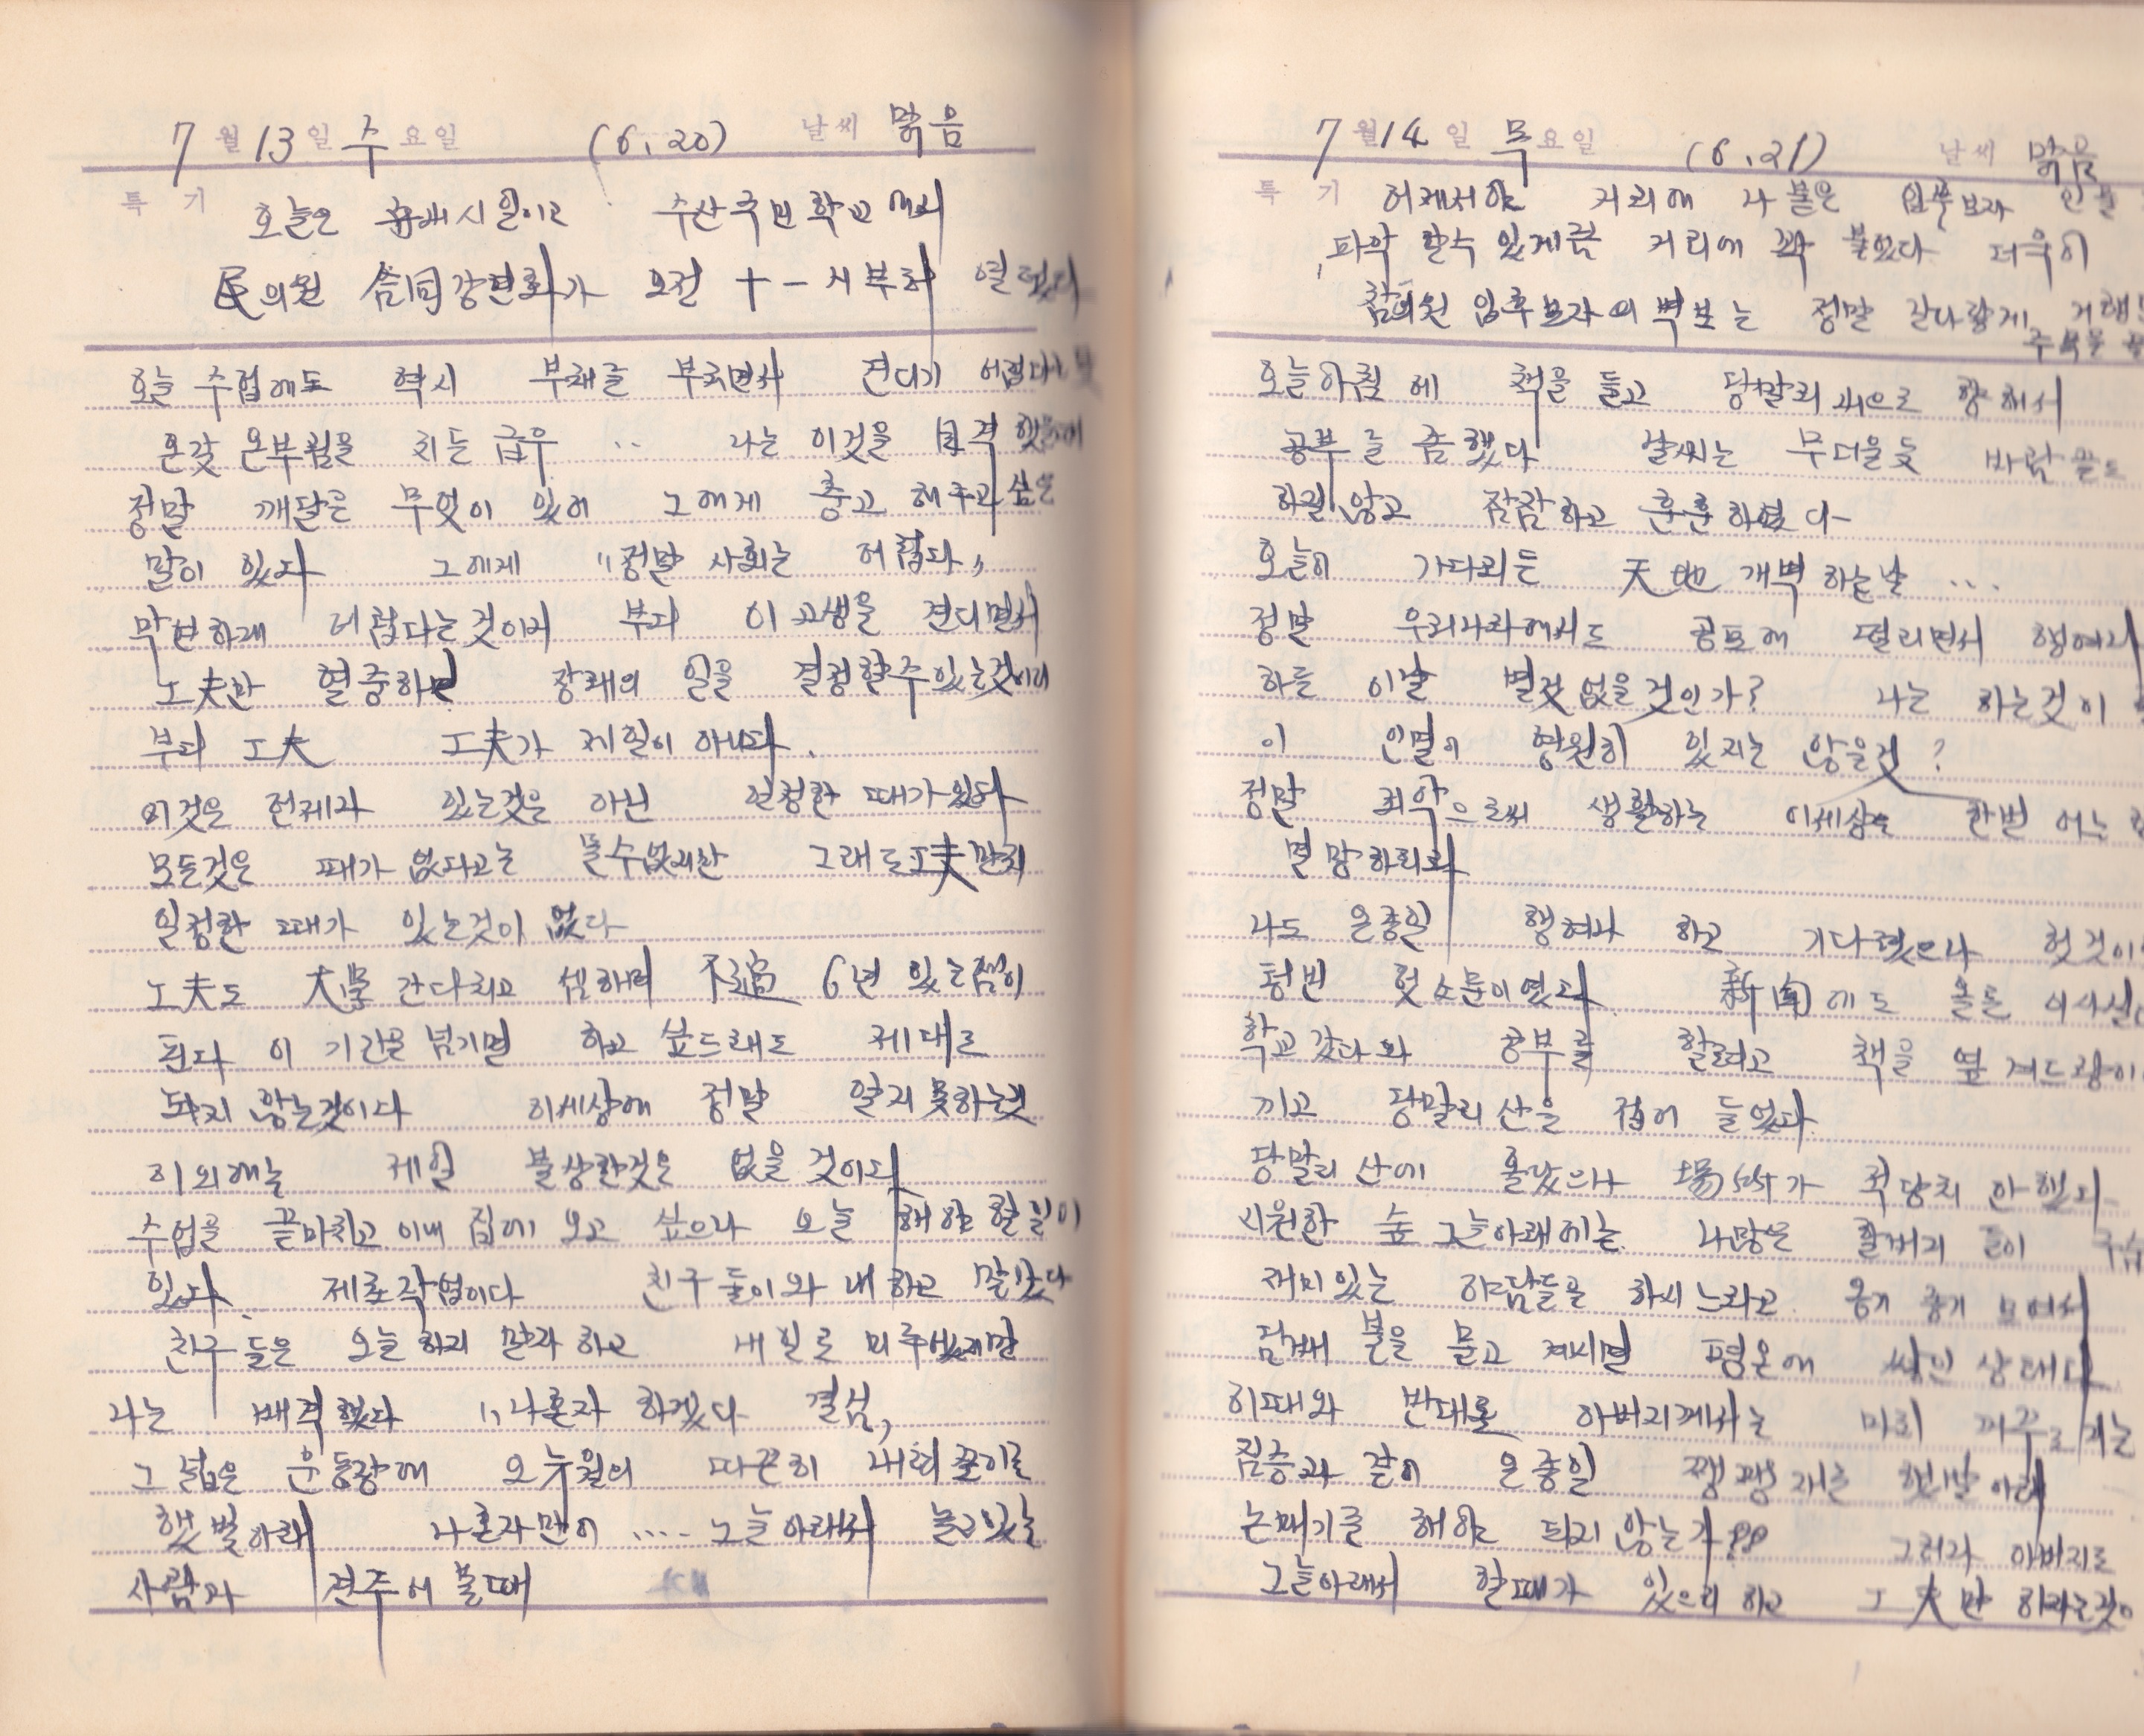 7 월 13 일 수 요일 (6, 20) 날씨 맑음
특 기 오늘은 수산국민학교에서
民의원 合同강연회가 오전 十一시부터 열렸다
오늘 수업에도 역시 부채를 부치면서 견디기 어렵다는 듯
온갖 온부림을 치든 급우 .. 나는 이것을 目격했을때
정말 깨달은 무엇이 있어 그에게 충고 해주고 싶은
말이 있다 그에게 "정말 사회는 어렵다"
막연하게 어렵다는것이지 부디 이 고생을 견디면서
工夫만 열중하면 장래의 일을 결정할수있는것이다
부디 工夫 工夫가 제일이 아니다.
이것은 언제라 있는것은 아닌 일정한 때가 있다
모든것은 때가 없다고는 볼수없지만 그래도 工夫만치
일정한 때가 있는것이 없다
工夫도 大學 간다치고 셈하며 不過 6년 있는 점이
된다 이 기간을 넘기면 하고 싶드래도 제대로
돼지 않는것이다 이세상에 정말 알지못하는것
이외에는 제일 불상한것은 없을 것이다
수업을 끝마치고 이내 집에 오고 싶으나 오늘 해야 할 일이
있다. 제초작업이다 친구 들이와 내하고 말았다
친구들은 오늘 하지 말자 하고 내일로 미루었지만
나는 배격했다 "나혼자 하겠다 결심,
그 넓은 운동장에 오六월의 따끈히 내려 쫓기를
햇빛아래 나혼자만이 .... 그늘아래서 놀고있는
사람과 견주어 볼때
7 월 14 일 목 요일 (6, 21) 날씨 맑음
특 기 어제서야 거리에 나붙은 입후보자 인물
파악 할수 있게끔 거리에 꽉 붙었다 더욱히
참의원 입후보자의 벽보는 정말 길다랗게 거행
주석을
오늘아침에 책을 들고 당말리 재으로 향해서
공부를 좀했다 날씨는 무더울듯 바람끝도
하질않고 잠잠하고 훈훈하였다
오늘이 기다리든 天地 개벽하는날 ...
정말 우리나라에서도 공포에 떨리면서 행여나
하든 이날 별것없을것인가? 나는 하는것이
이 인멸이 영원히 있지는 않을것?
정말 죄악으로써 생활하는 이세상은 한번 어느
멸망하리라
나도 온종일 행여나 하고 기다렸으나 헛것이
텅빈 헛소문이였다. 新聞에도 올른 이사실
학교 갔다 와 공부를 할려고 책을 옆 겨드랑이
끼고 당말리산을 접어 들었다.
당말리 산에 올랐으나 場所가 적당치 안했다
시원한 숲 그늘아래에는 나많은 할머지 들이
재미있는 야담들을 하시느라고 옹기 종기 모여서
담배 불을 물고 계시면 평온에 싸인 상태다
이때와 반대로 아버지께서는 마치 까꾸로 지는
짐승과 같이 온종일 쨍쨍 쬐는 햇빛 아래
논매기를 해야 되지 않는가?? 그러나 아버지도
그늘아래서 할때가 있으리 하고 工夫만 하라는것이